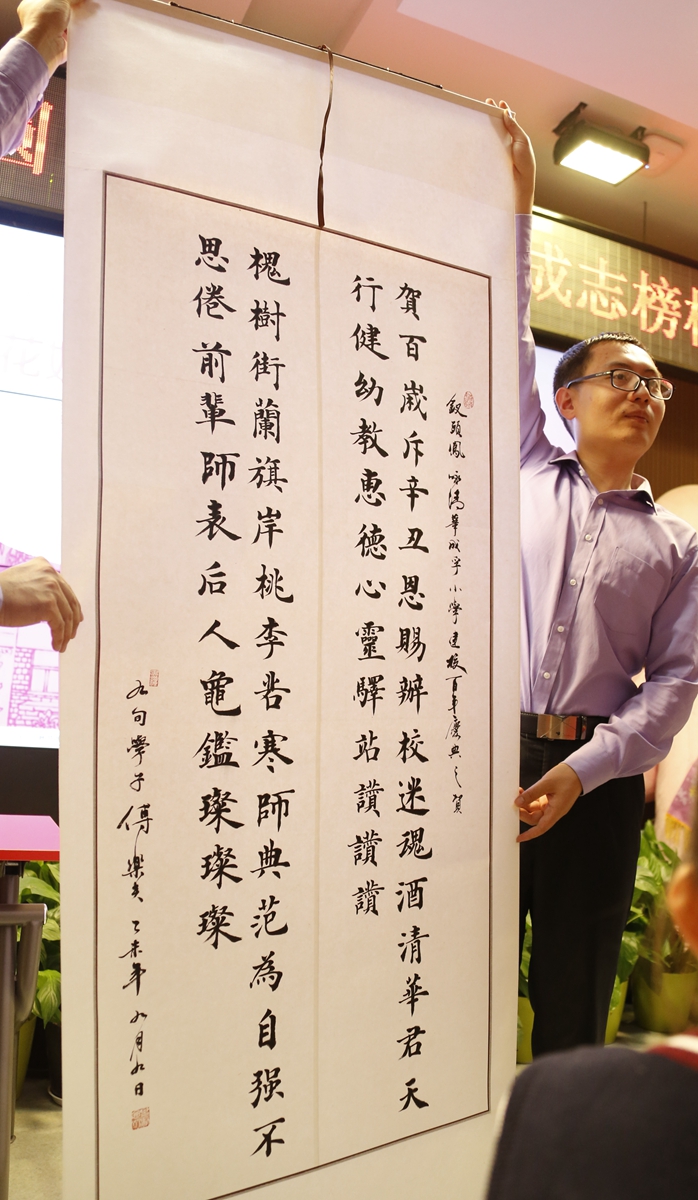 成志榜
釵頭鳳 咏清華成志小學建校百年慶典之賀
賀百歲斥辛丑恩賜辦校迷魂酒清華君天
行健幼教惠德心靈驛站讚讚讚
槐樹街蘭旗岸桃李寒師典范為自强不
思倦前輩師表后人龜鑑璨璨璨
九旬學子傅樂 乙未年九月九日